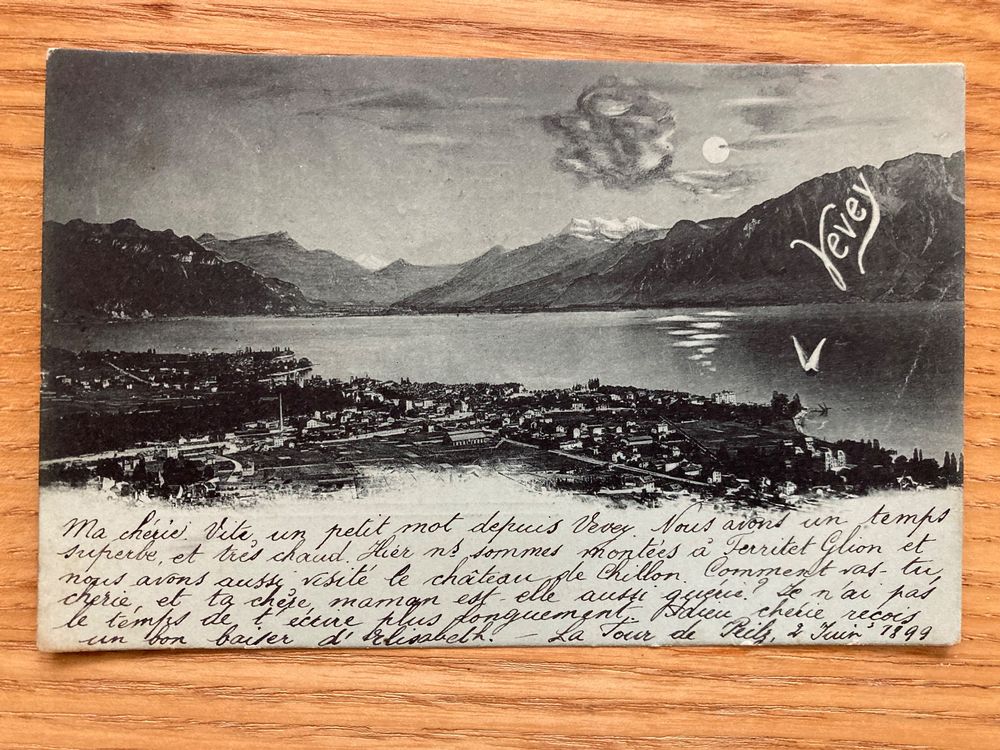 Vevey
Ma chérie. Vite, un petit mot depuis Vevey. Nous avons un temps
superbe, et très chaud. Hier ns. sommes montées à Territet Glion et
nous avons aussi visité le château de Chillon. Comment vas-tu,
chérie, et ta chère maman est-elle aussi guérie? Je n'ai pas
le temps de t'écrire plus longuement. Adieu, chérie reçois
un bon baiser d'Elisabeth. – La Tour de Peilz, 2 Juin 1899